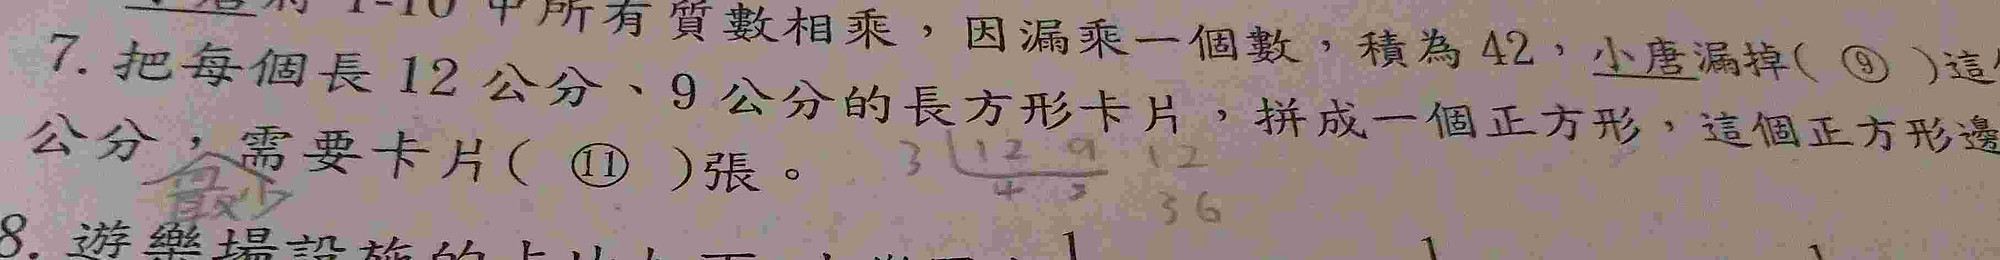 1-10中所有質數相乘，因漏乘一個數，積為42，小唐漏掉( ⑨ )這
7. 把每個長12公分、9公分的長方形卡片，拼成一個正方形，這個正方形邊
公分，需要卡片( ⑪ )張。
最少
3 12 9 12
4 3 36
8. 遊樂場設施的